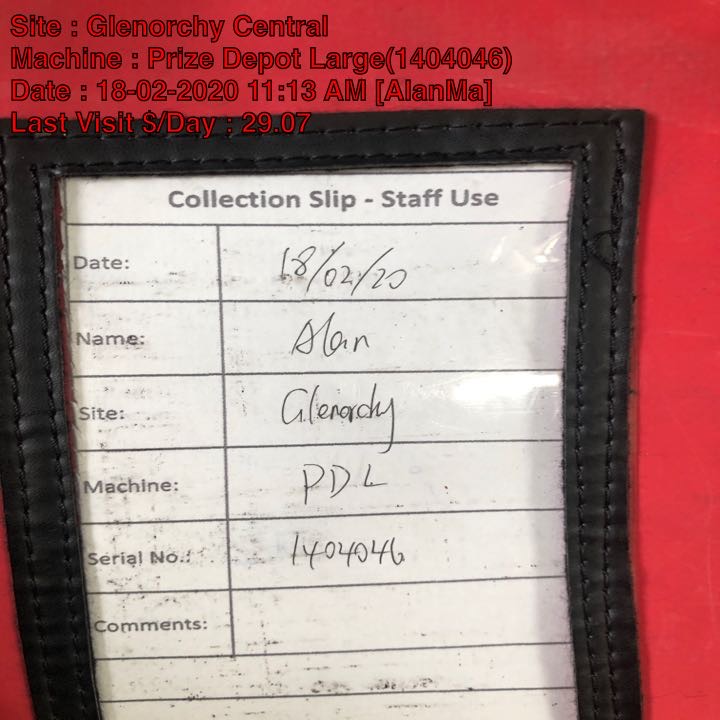 Site : Glenorchy Central
Machine : Prize Depot Large(1404046)
Date : 18-02-2020 11:13 AM [AlanMa]
Last Visit $/Day : 29.07
Collection Slip - Staff Use
Date: 18/02/20
Name: Alan
Site: Glenorchy
Machine: PDL
Serial No.: 1404046
Comments: